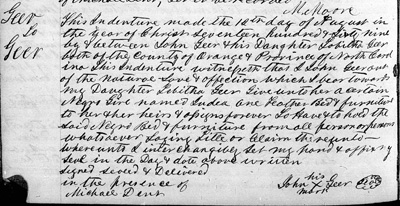 M. Moore
Geer
to
Geer
This Indenture made the 12th day of August in
the year of Christ seventeen hundred & sixty nine
by & between John Geer & his Daughter Lobitha Geer
both of the County of Orange & Province of North Caro
lina This Indenture witnesseth that I John Geer out
of the Naturoe Love & affection which I bear towarts
my Daughter Lobitha Geer Give unto her a certain
Negro Girl named Judea one Feather Bed & furniture
to her & her heirs & assigns forever To Have & to hold the
said Negro Bed & furniture from all person or persons
whatsoever Laying title or Claim thereunto
whereunto I interchangibly Set my hand & affix my
Seal in the Day & date above written
Signed Sealed & Delivered
in the presence of
Michael Dent
his
John X Geer
mark